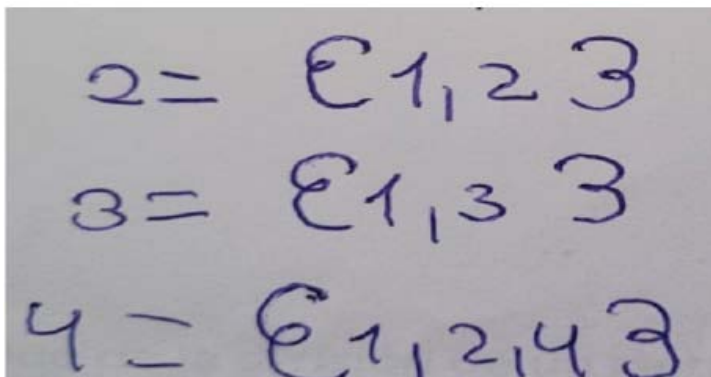 2 = {1,2}
3 = {1,3}
4 = {1,2,4}